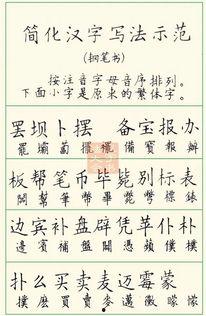 简化汉字写法示范
(钢笔书)
按注音字母音序排列。
下面小字是原来的繁体字。
罢坝卜摆 备宝报办
罷壩蔔擺襬 備寶報辦
板帮笔币毕毙别标表
闆幫筆幣畢斃彆標錶
边宾补盘辟凭苹仆朴
邊賓補盤闢憑蘋僕樸
扑么买卖麦迈霉蒙
撲麽買賣麥邁黴矇